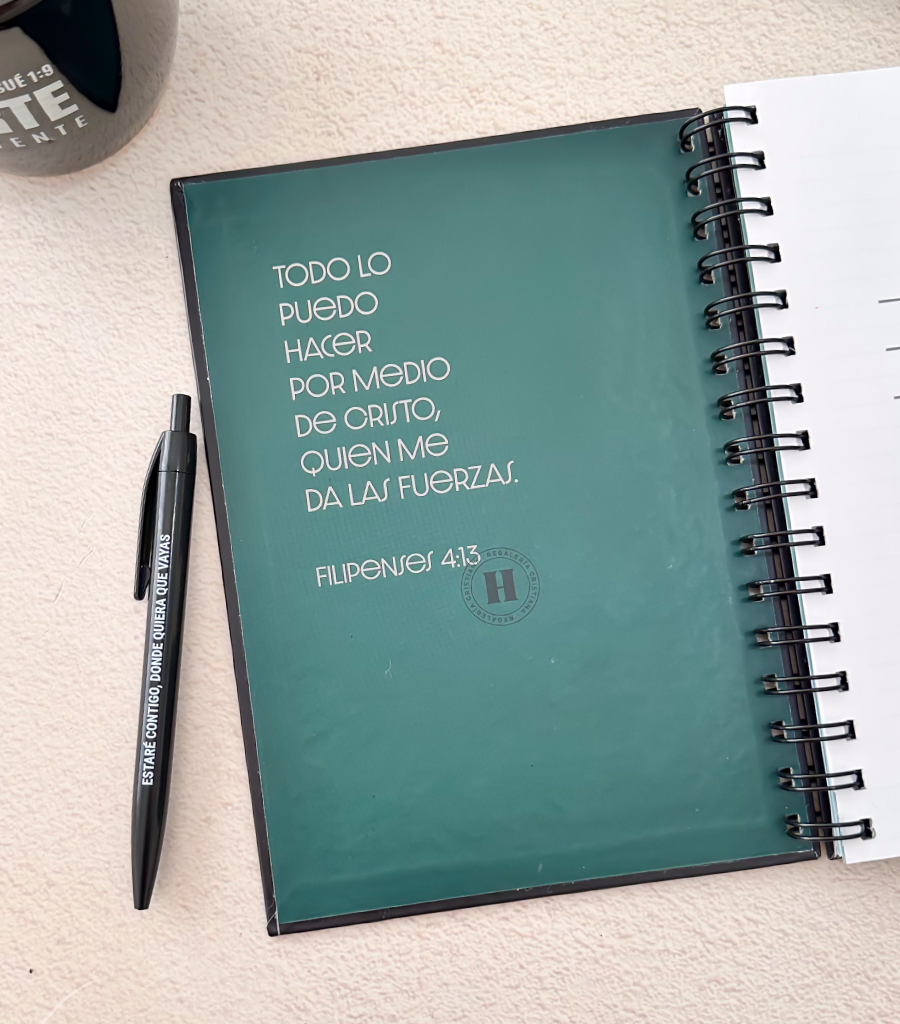 TODO LO
PUEDO
HACER
POR MEDIO
DE CRISTO,
QUIEN ME
DA LAS FUERZAS.
FILIPENSES 4:13
REGALERÍA CRISTIANA · REGALERÍA CRISTIANA ·
H
ESTARÉ CONTIGO, DONDE QUIERA QUE VAYAS
1:9